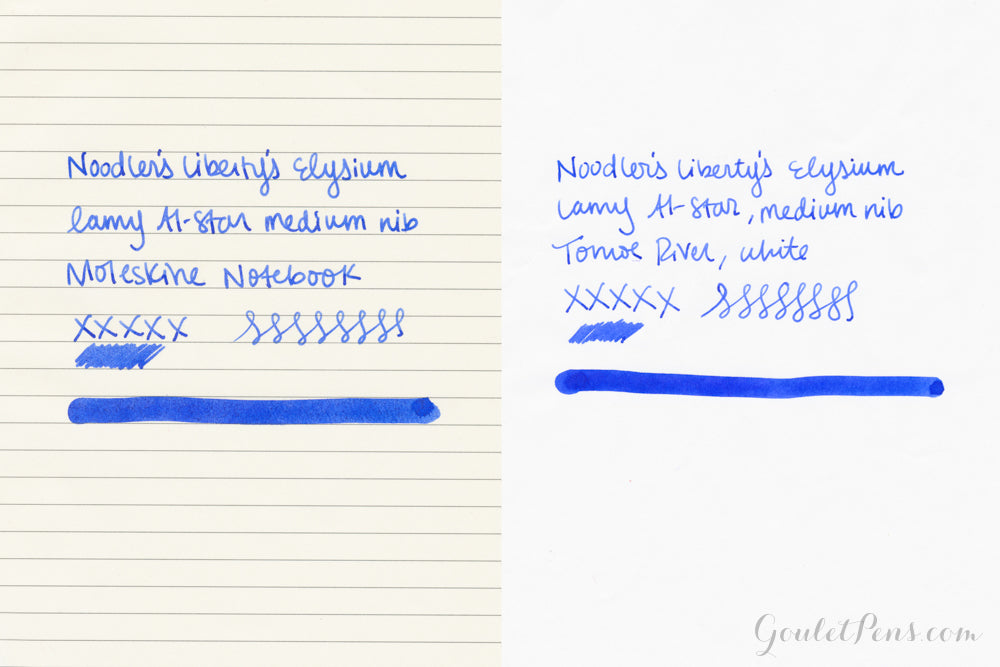 Noodler's Liberty's Elysium
Lamy Al-Star medium nib
Moleskine Notebook
XXXXX
Noodler's Liberty's Elysium
Lamy Al-Star, medium nib
Tomoe River, white
XXXXX
GouletPens.com